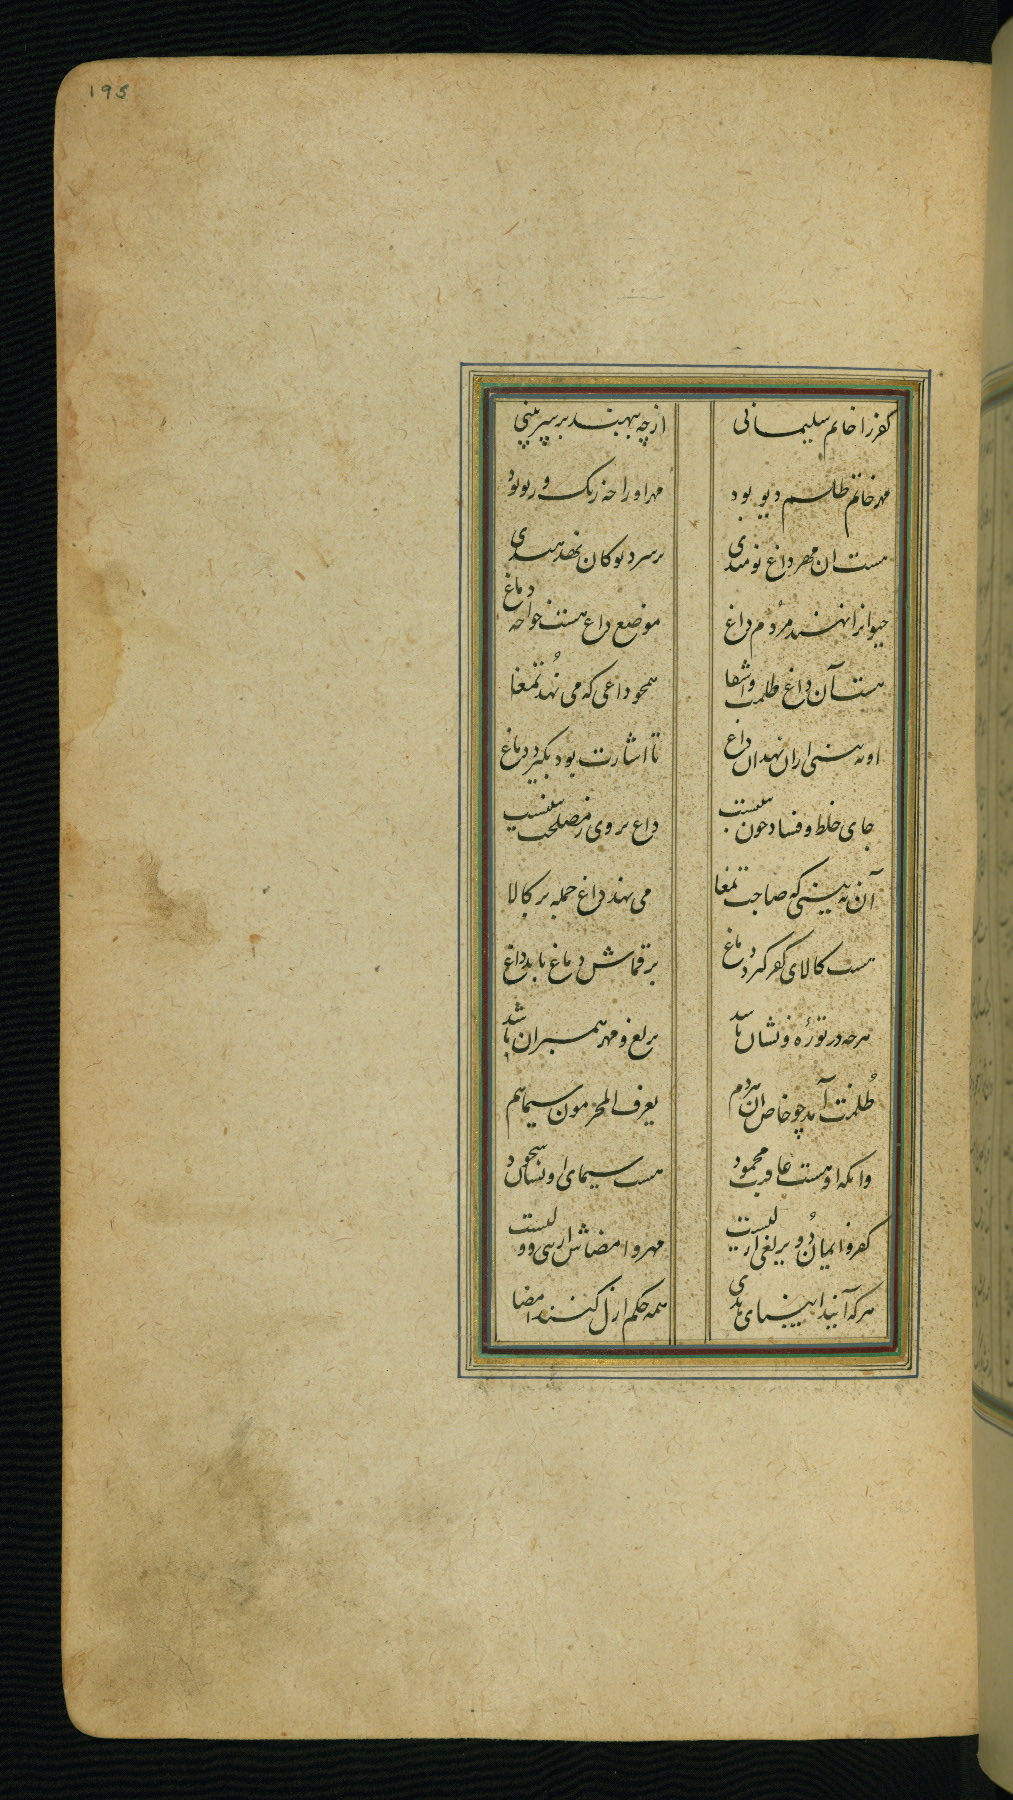 195
کفر را خاتم سلیمانی از چه بنهند بر سپر بینی
مهر خاتم طلسم دیو بود مهر او را چه رنگ و ریو بود
هست ان مهر داغ نومیدی بر سر دیو کان نهد
حیوانرا نهند مردم داغ موضع داغ هست خواجه دماغ
هست آن داغ ظلمت و اشقا همچو داغی که می نهد تمغا
او نه بینی از ان نهد ان داغ تا اشارت بود بگیرد دماغ
جای خلط و فساد چون داغ بر وی ز مصلحت
آن نه بینی که صاحب تمغا می نهد داغ جمله بر کالا
هست کالای کفر کرد دماغ بر قماش دماغ باید داغ
هرچه در تورهٔ و نشان باشد یرلغ و مهر همبران باشد
ظلمت آمد چو خاص ان مردم یعرف المجرمون سیماهم
وانکه او هست عاقبت محمود هست سیمای او نشان سجود
کفر و ایمان دو یرلغی مهر و امضاش از پی
هرکه آنید ابینمای بدی همه حکم ازل کنند امضا